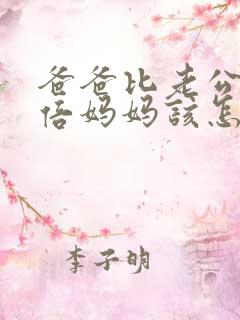 爸爸比老公
倍妈妈該怎
李子明